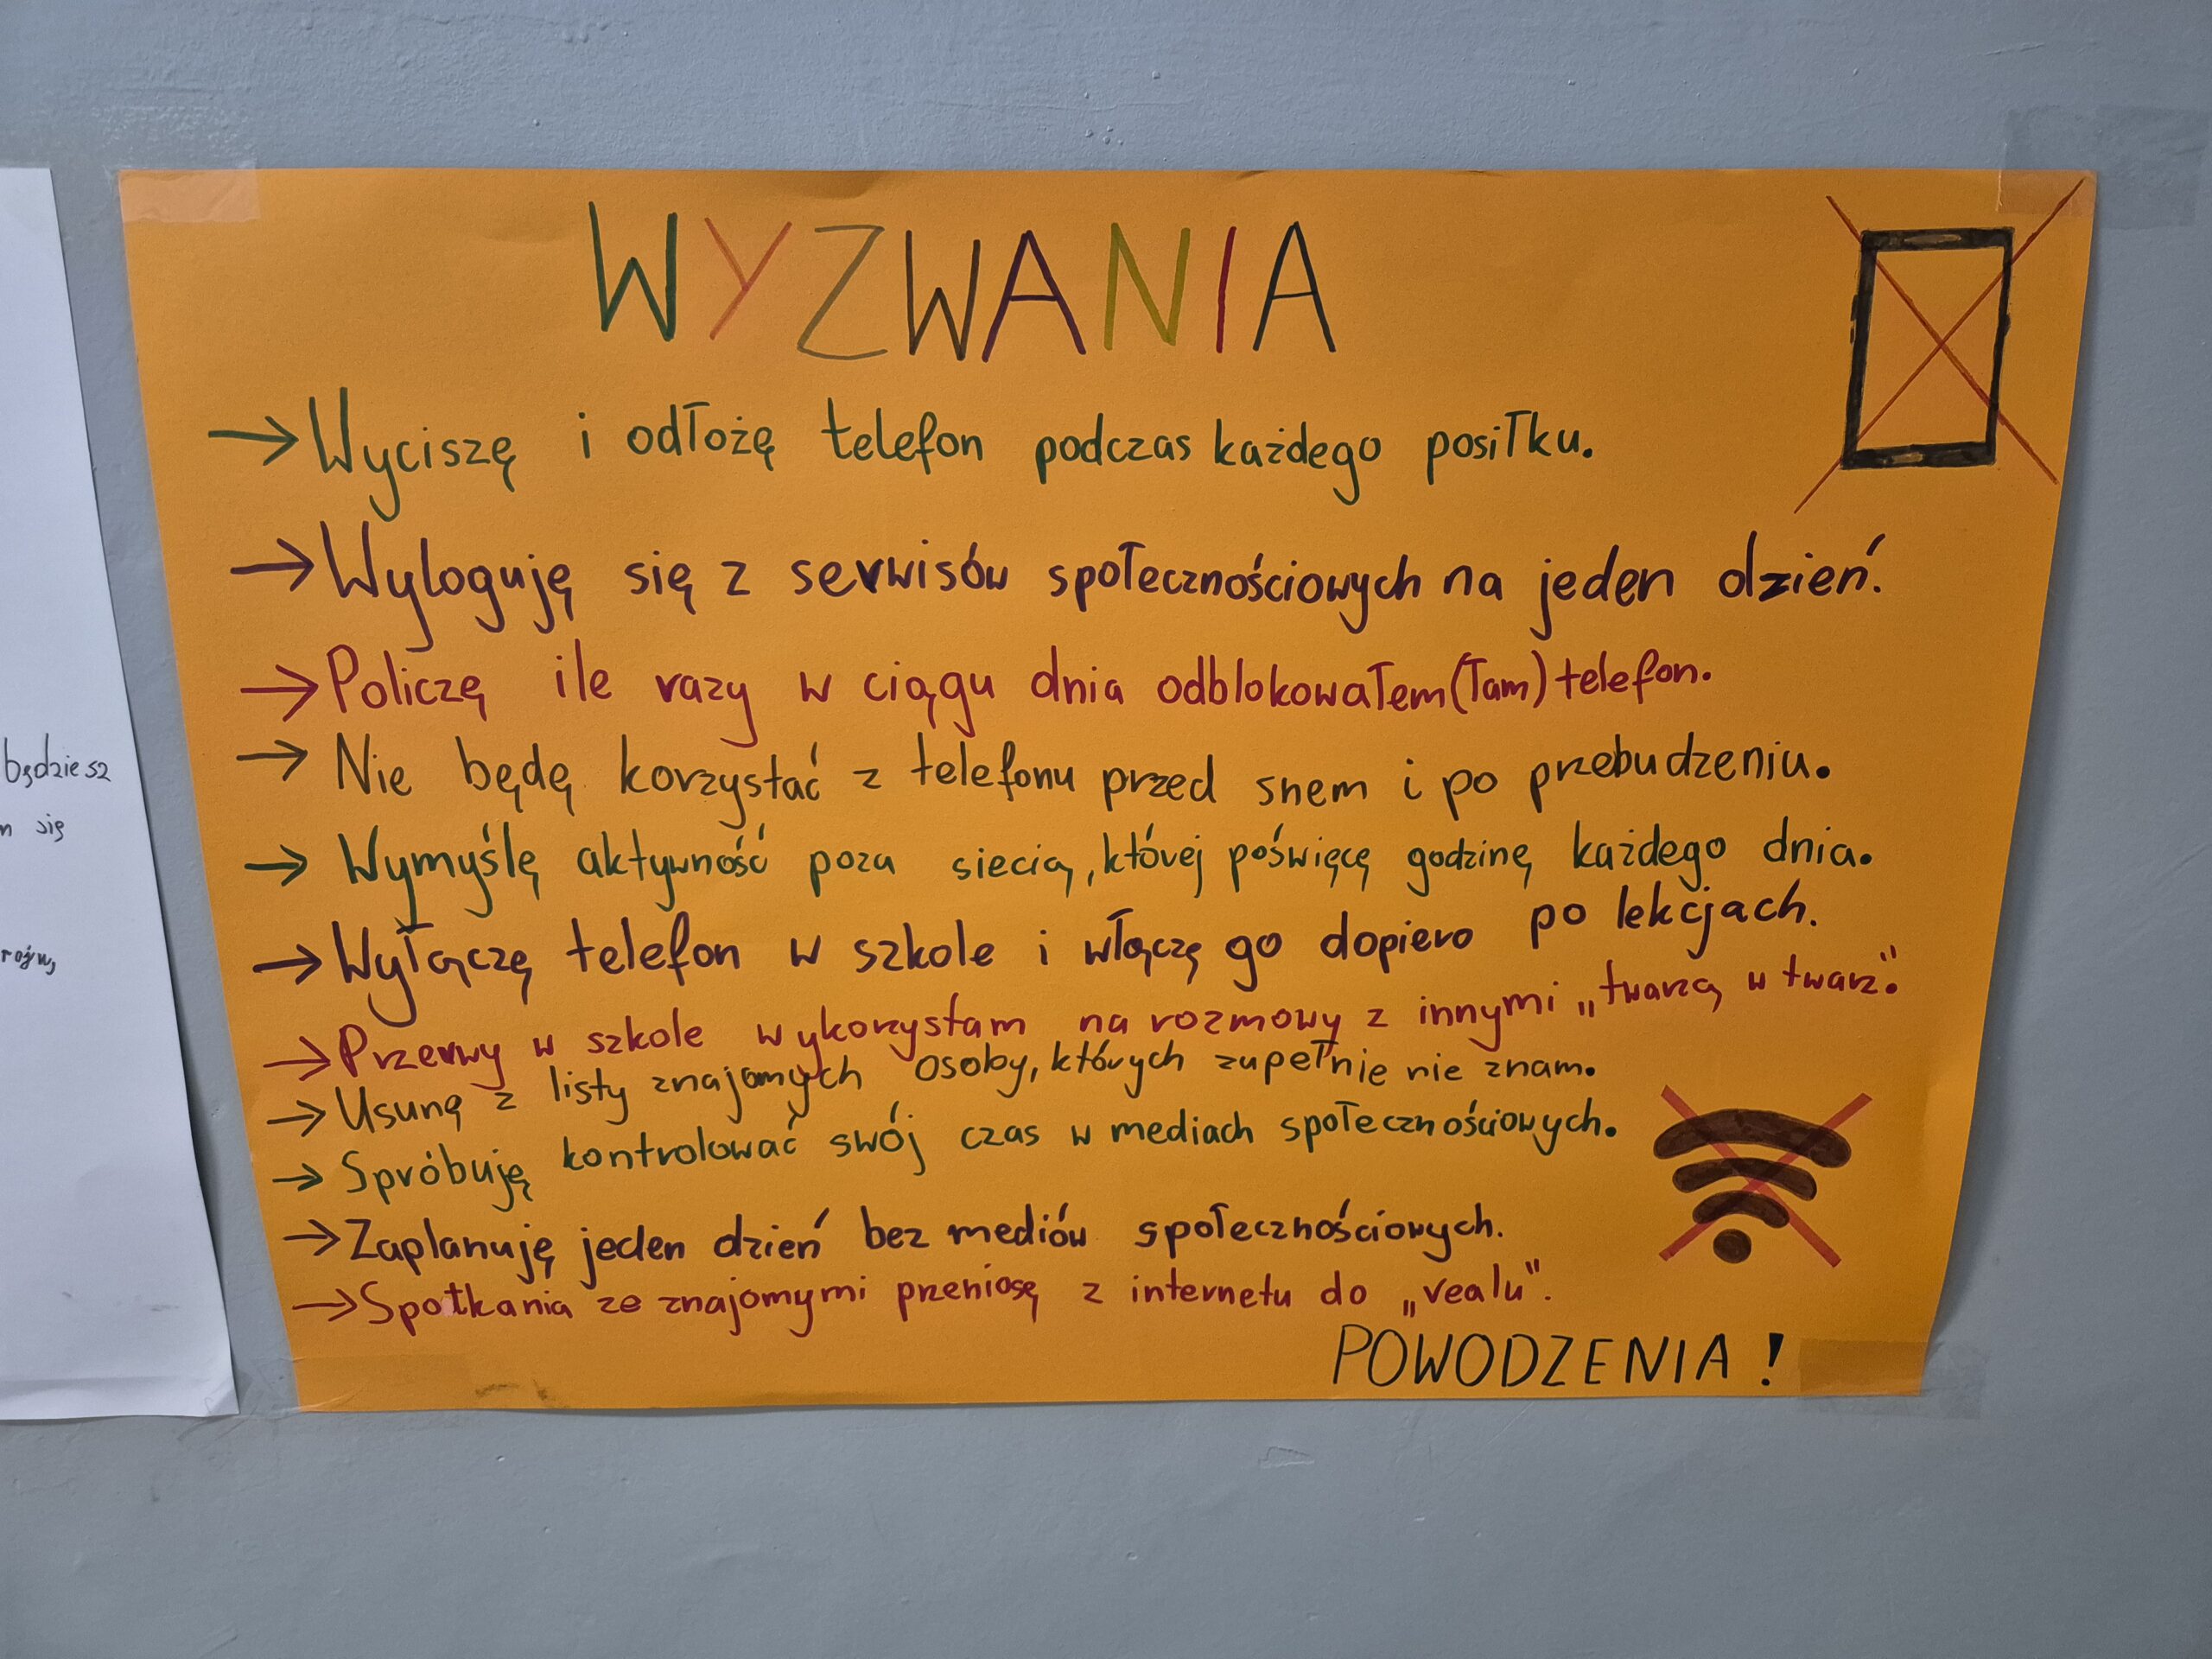 WYZWANIA
→ Wyciszę i odłożę telefon podczas każdego posiłku.
→ Wyloguję się z serwisów społecznościowych na jeden dzień.
→ Policzę ile razy w ciągu dnia odblokowałem(łam) telefon.
→ Nie będę korzystać z telefonu przed snem i po przebudzeniu.
→ Wymyślę aktywność poza siecią, której poświęcę godzinę każdego dnia.
→ Wyłączę telefon w szkole i włączę go dopiero po lekcjach.
→ Przerwy w szkole wykorzystam na rozmowy z innymi „twarzą w twarz".
→ Usunę z listy znajomych osoby, których zupełnie nie znam.
→ Spróbuję kontrolować swój czas w mediach społecznościowych.
→ Zaplanuję jeden dzień bez mediów społecznościowych.
→ Spotkania ze znajomymi przeniosę z internetu do „realu".
POWODZENIA!
będziesz
się